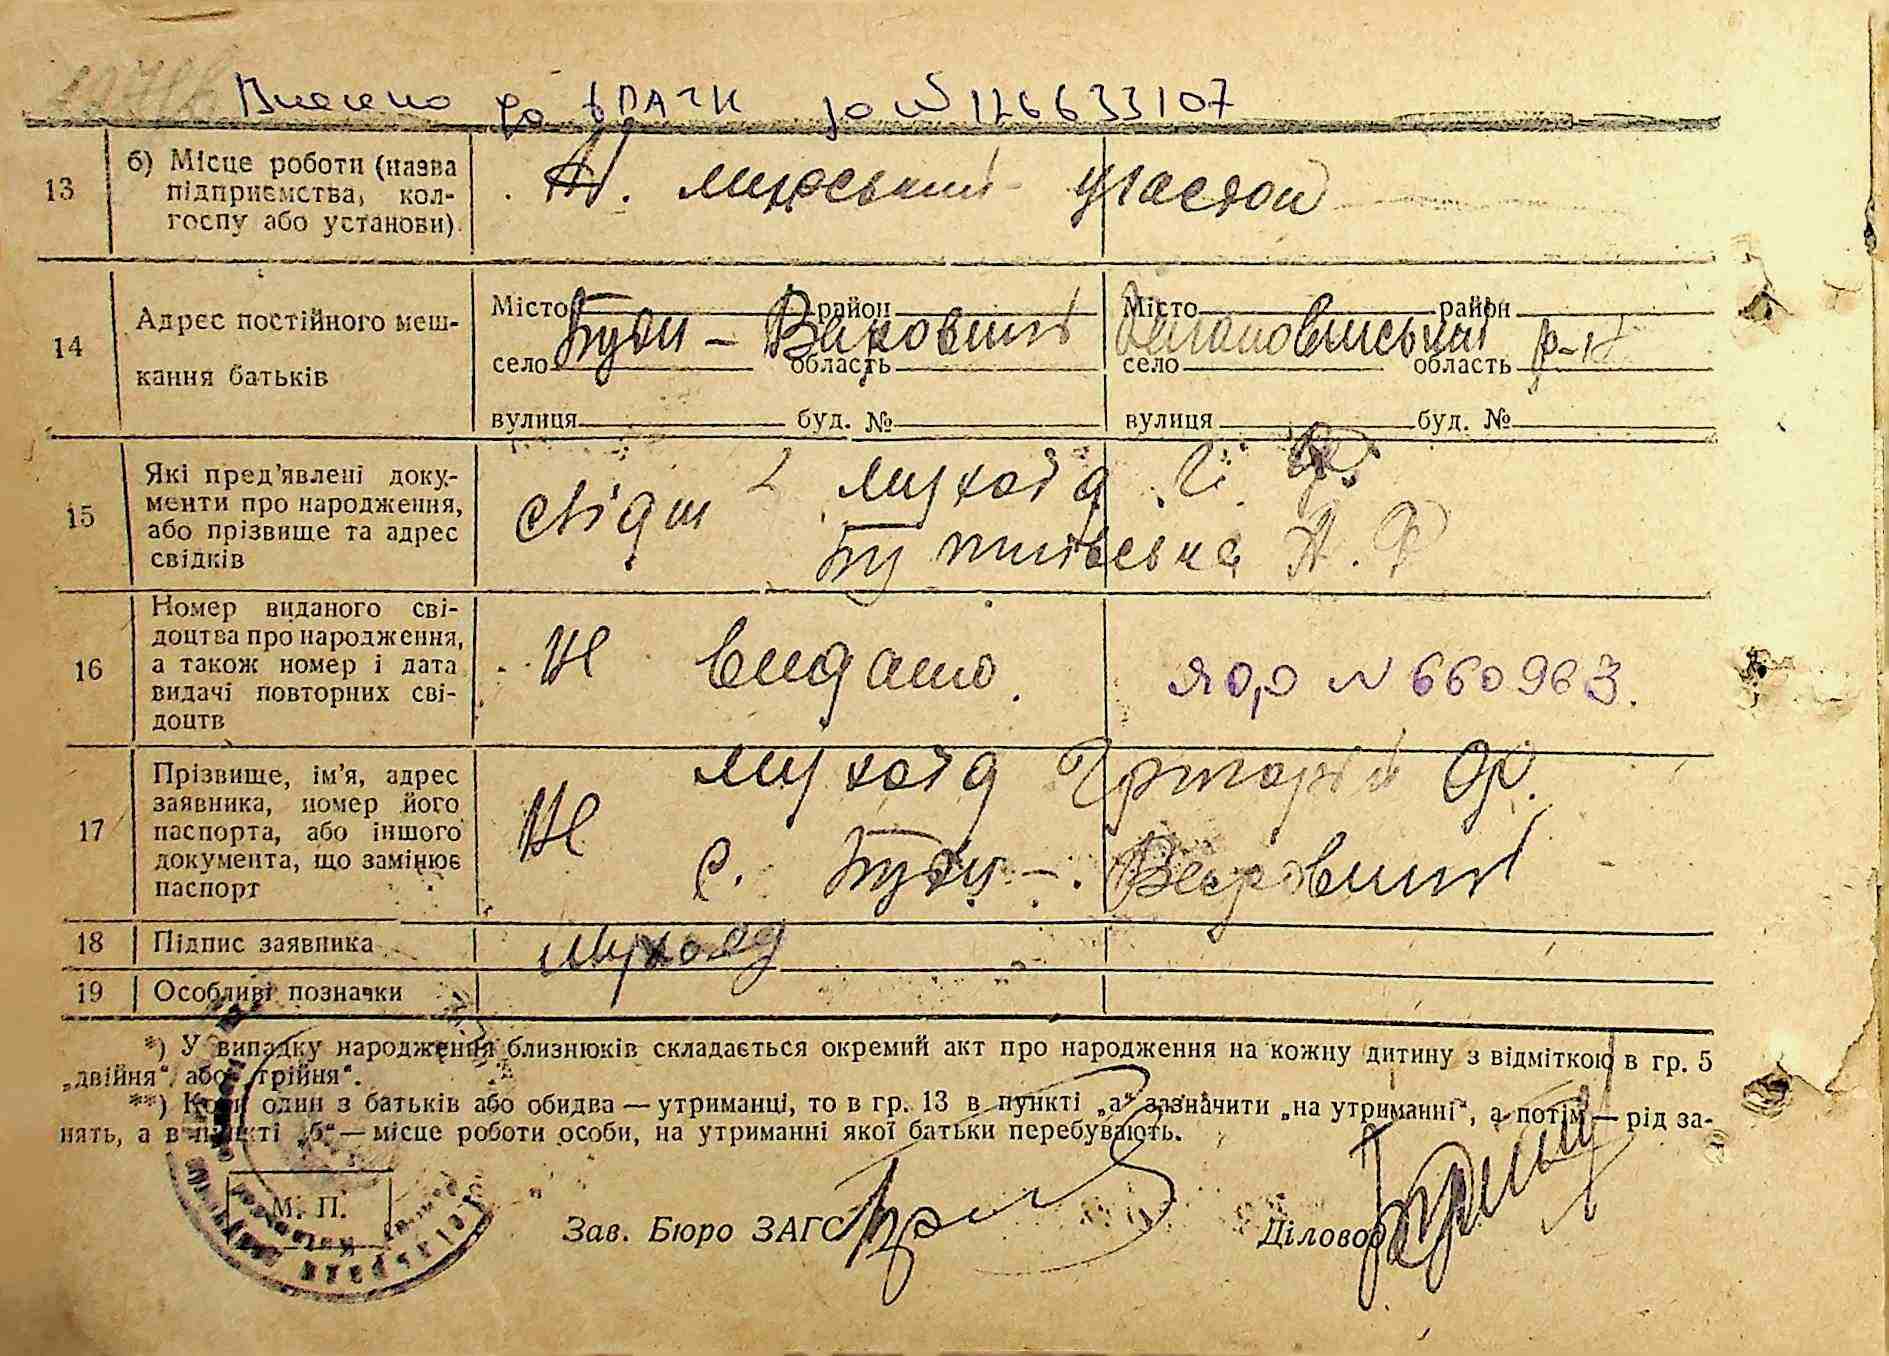 Внесено до ДРАЦС за № 126633107
13
б) Місце роботи (назва
підприємства, кол-
госпу або установи)
участок
14
Адрес постійного меш-
кання батьків
Місто район
село область
вулиця буд. №
Буди - Вар овичі
Місто район
село область
вулиця буд. №
р-н
15
Які пред'явлені доку-
менти про народження,
або прізвище та адрес
свідків
свідки 2 Мухоїд Г. Ф.
А. Ф
16
Номер виданого сві-
доцтва про народження,
а також номер і дата
видачі повторних сві-
доцтв
Не видано.
№ 660963.
17
Прізвище, ім'я, адрес
заявника, номер його
паспорта, або іншого
документа, що замінює
паспорт
Мухоїд Григорій Ф.
Не
с. Буди -
18
Підпис заявника
Мухоїд
19
Особливі позначки
*) У випадку народження близнюків складається окремий акт про народження на кожну дитину з відміткою в гр. 5
„двійня“ або „трійня“.
**) Коли один з батьків або обидва — утриманці, то в гр. 13 в пункті „а“ зазначити „на утриманні“, а потім — рід за-
нять, а в пункті „б“ — місце роботи особи, на утриманні якої батьки перебувають.
М. П.
Зав. Бюро ЗАГС
Діловод